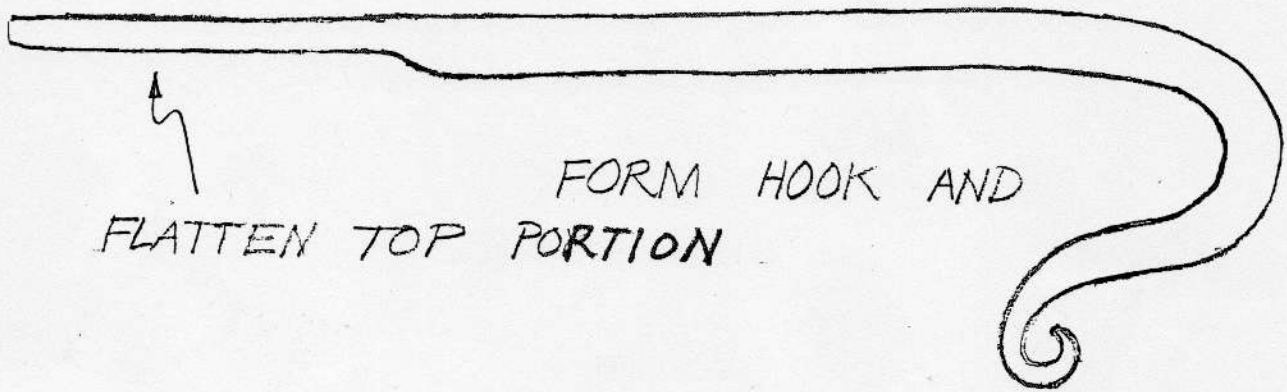 FORM HOOK AND
FLATTEN TOP PORTION